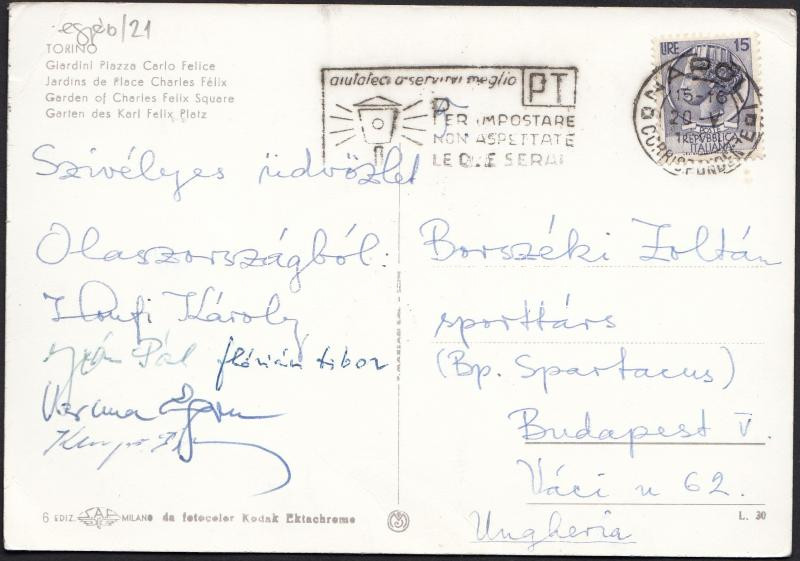 egyéb/21
TORINO
Giardini Piazza Carlo Felice
Jardins de Place Charles Félix
Garden of Charles Felix Square
Garten des Karl Felix Platz
aiutateci a servirvi meglio
PT
PER IMPOSTARE
NON ASPETTATE
LE ORE SERALI
LIRE 15
15-16
20 V
POSTE
REPVBBLICA
ITALIANA
Szivélyes üdvözlet
Olaszországból:
Honfi Károly
Pál flórián tibor
Borszéki Zoltán
sporttárs
(Bp. Spartacus)
Budapest V.
Váci u 62.
Ungheria
6 EDIZ. SAF MILANO da fotocolor Kodak Ektachrome
L. 30